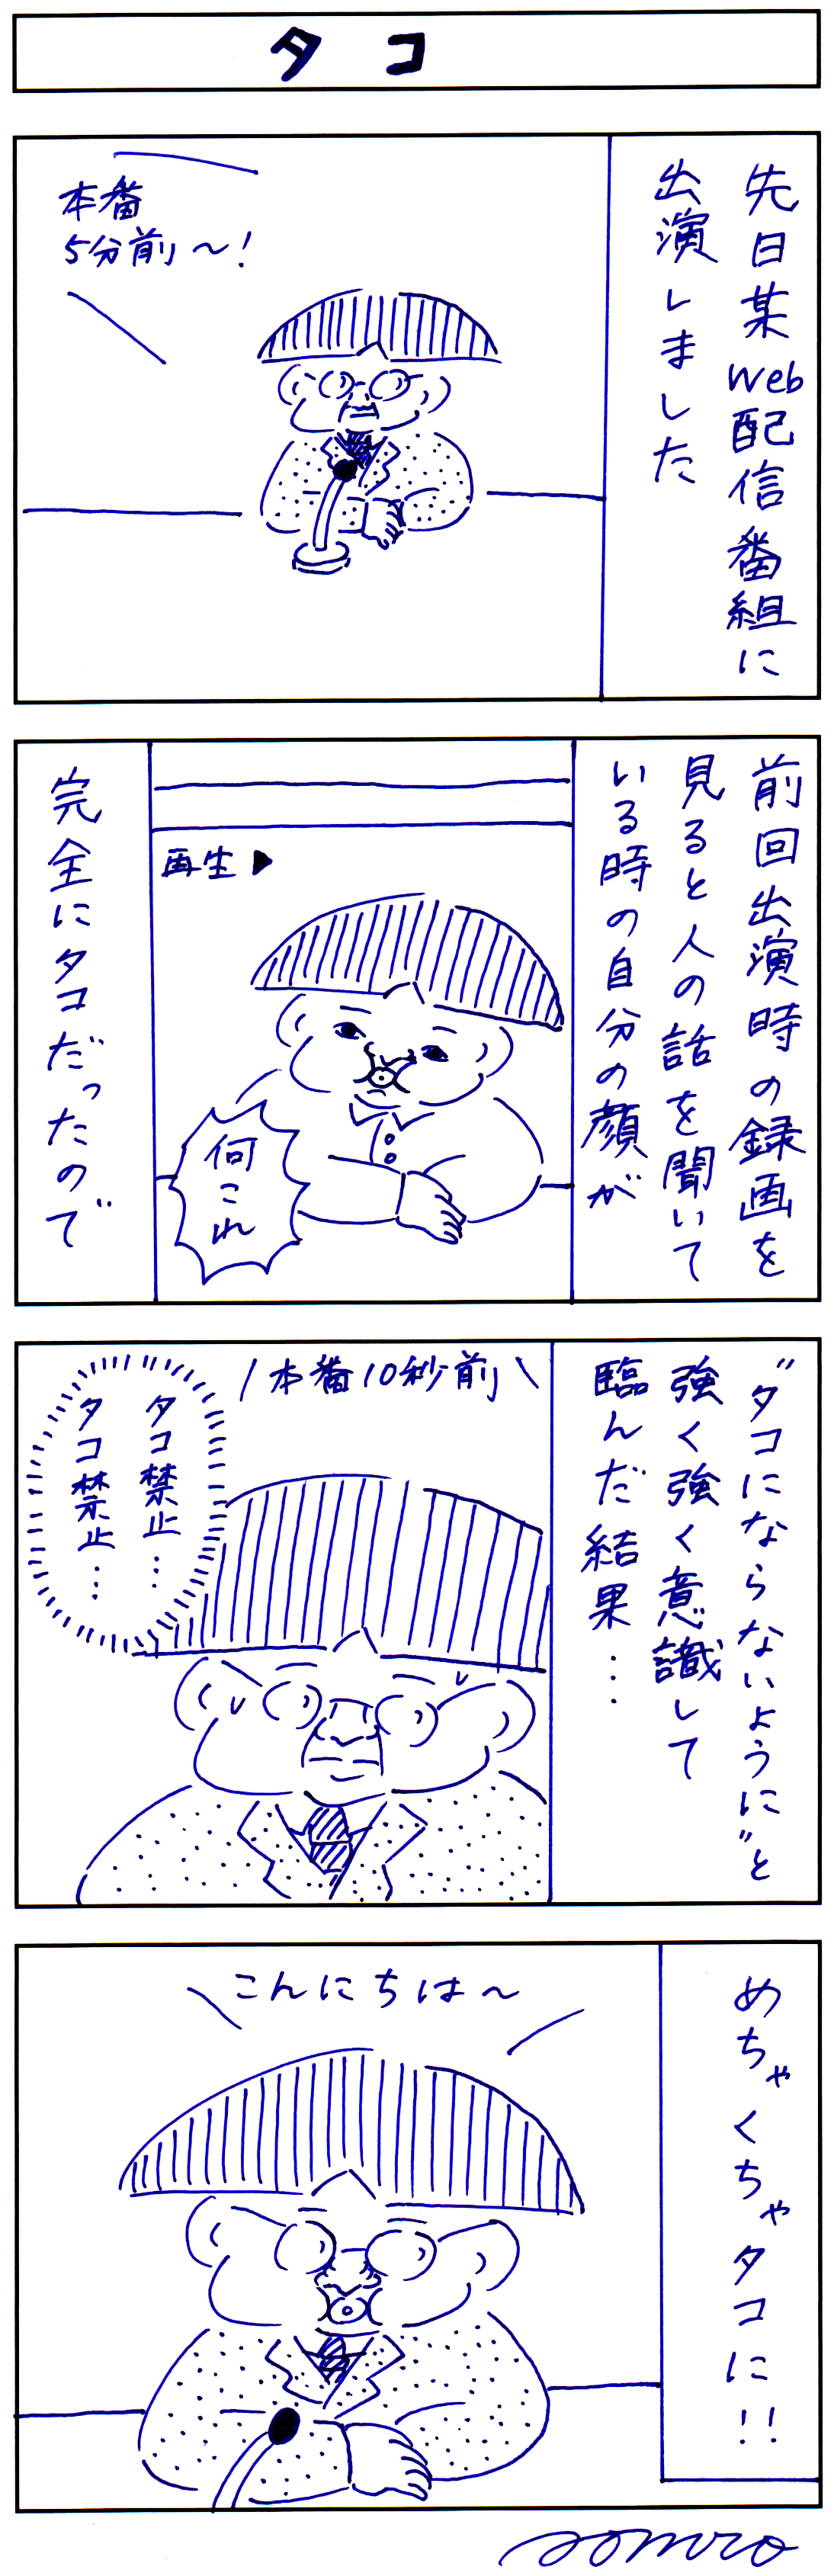 タコ
先日某web配信番組に
出演しました
本番
5分前～!
前回出演時の録画を
見ると人の話を聞いて
いる時の自分の顔が
再生▶
何これ
完全にタコだったので
"タコにならないように"と
強く強く意識して
臨んだ結果…
本番10秒前
タコ禁止…
タコ禁止…
めちゃくちゃタコに!!
こんにちは～